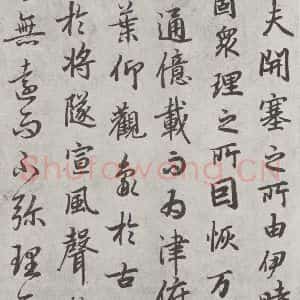 夫開塞之所由伊
固衆理之所因恢万
通億載而為津俯
葉仰觀象於古
於將墜宣風聲
無遠而不弥理
Shufawang.CN